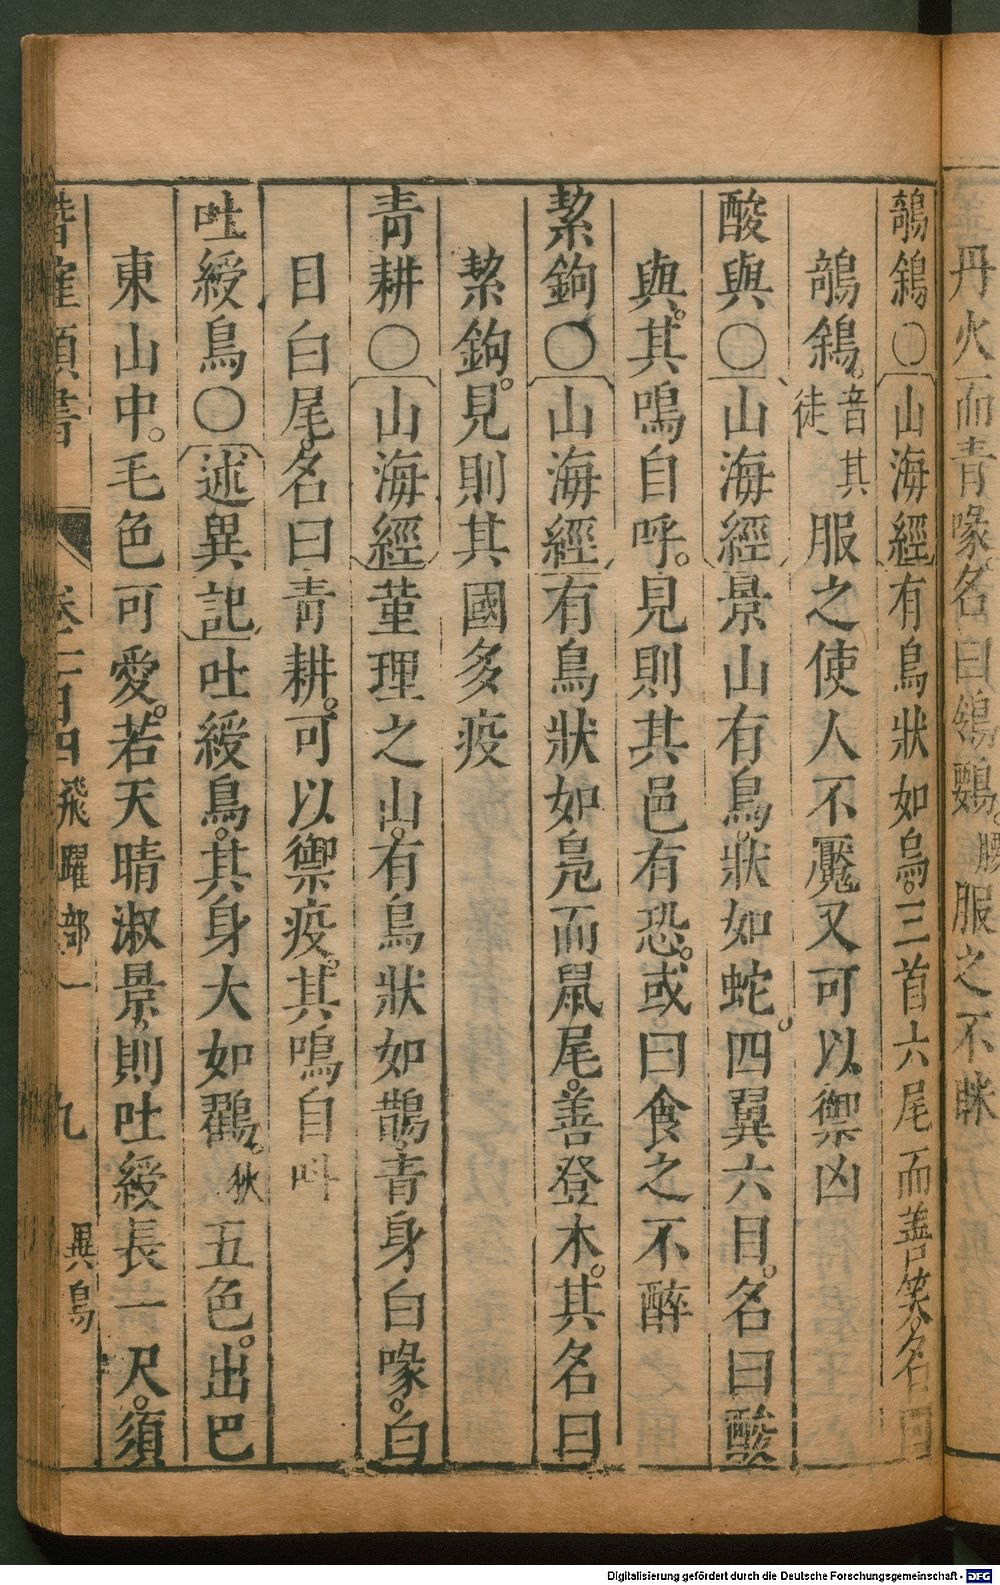 丹火而青喙名曰鴒䴈。腰服之不眯
鵸鵌〇山海經有鳥狀如烏。三首六尾而善笑。名曰
鵸鵌。音其徒、服之使人不魘又可以禦凶
酸與〇山海經景山有鳥。狀如蛇。四翼六目。名曰酸
與。其鳴自呼。見則其邑有恐。或曰食之不醉
絜鉤〇山海經有鳥狀如鳧而鼠尾。善登木。其名曰
絜鉤。見則其國多疫
青耕〇山海經堇理之山。有鳥狀如鵲。青身白喙。白
目白尾。名曰青耕。可以禦疫。其鳴自叫
吐綬鳥〇述異記吐綬鳥。其身大如鸐。狄五色。出巴
東山中。毛色可愛。若天晴淑景。則吐綬長一尺。須
潛確類書 卷一百四 飛躍部一 九 異鳥
Digitalisierung gefördert durch die Deutsche Forschungsgemeinschaft - DFG